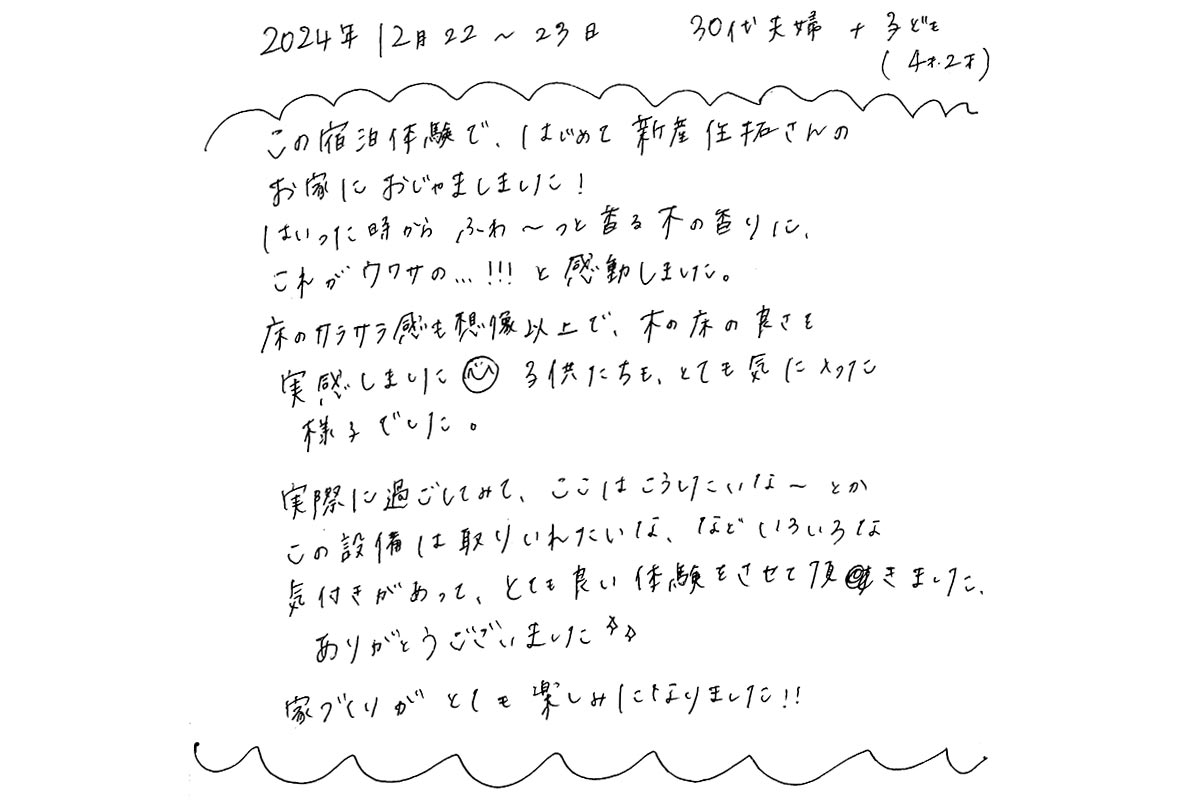 2024年 12月22〜23日 30代夫婦 + 子ども
(4才.2才)
この宿泊体験で、はじめて 新産住拓さんの
お家に おじゃましました!
はいった時から ふわ〜っと香る木の香りに、
これがウワサの…!!!と感動しました。
床のサラサラ感も想像以上で、木の床の良さを
実感しました 子供たちも、とても気に入った
様子でした。
実際に過ごしてみて、ここはこうしたいな〜とか
この設備は取りいれたいな、などいろいろな
気付きがあって、とても良い体験をさせて頂きました、
ありがとうございました
家づくりが とても楽しみになりました!!